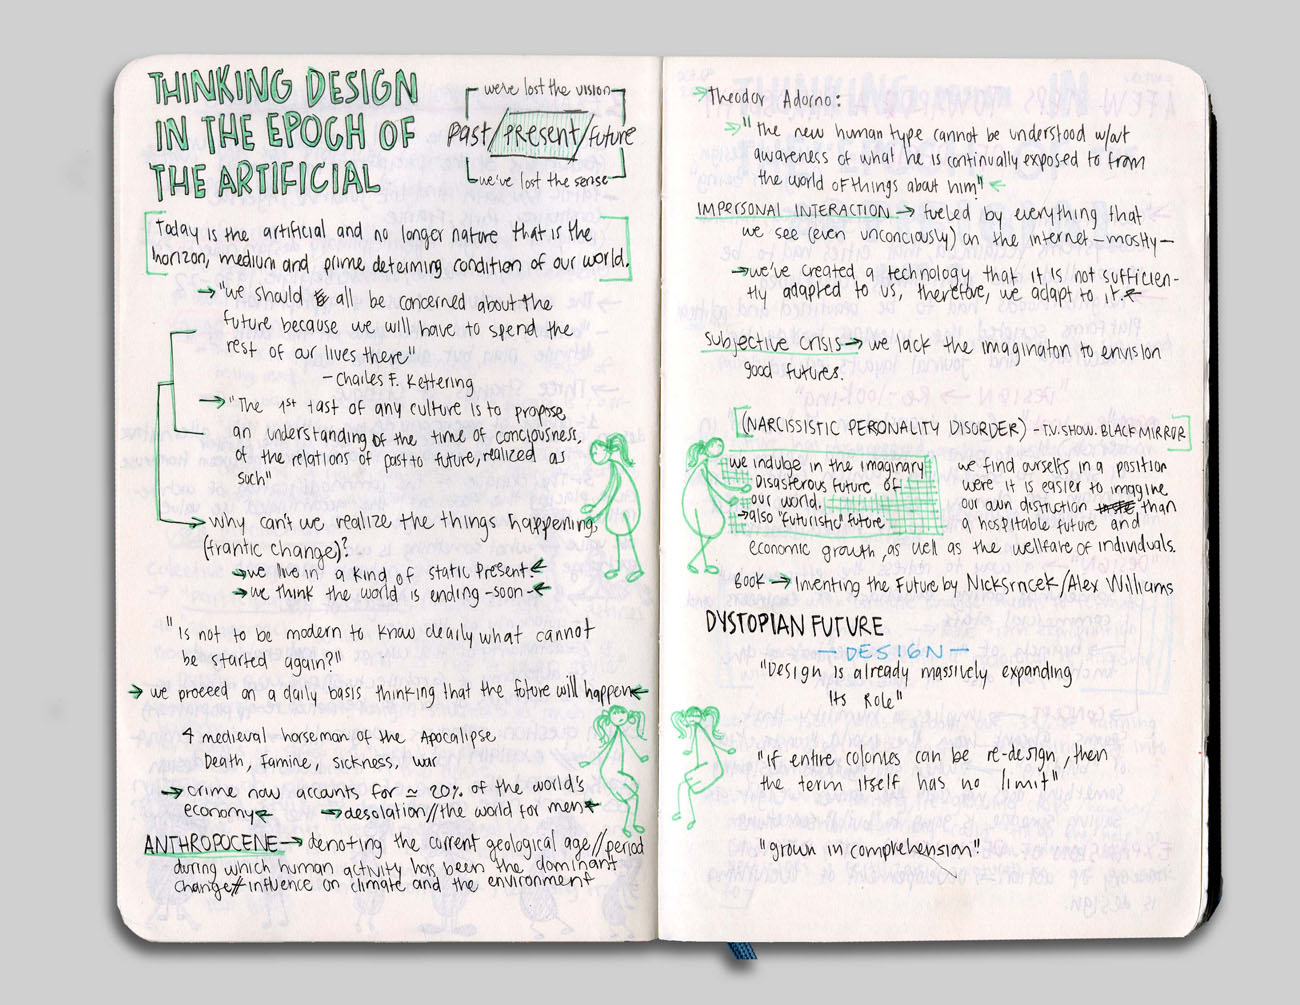 THINKING DESIGN
IN THE EPOCH OF
THE ARTIFICIAL
we've lost the vision
past/present/future
we've lost the sense
Today is the artificial and no longer nature that is the
horizon, medium and prime determing condition of our world.
→ "we should all be concerned about the
future because we will have to spend the
rest of our lives there"
- Charles F. Kettering
→ "The 1st tast of any culture is to propose
an understanding of the time of conciousness,
of the relations of past to future, realized as
such"
→ why can't we realize the things happening,
(frantic change)?
→ we live in a kind of static present. ←
→ we think the world is ending - soon - ←
"Is not to be modern to know clearly what cannot
be started again?"
→ we proceed on a daily basis thinking that the future will happen ←
4 medieval horseman of the Apocalipse
Death, famine, sickness, war
→ crime now accounts for ≃ 20% of the world's
economy ← → desolation//the world for men ←
ANTHROPOCENE → denoting the current geological age//period
during which human activity has been the dominant
change//influence on climate and the environment
→ Theodor Adorno:
→ "the new human type cannot be understood w/out
awareness of what he is continually exposed to from
the world of things about him" ←
IMPERSONAL INTERACTION → fueled by everything that
we see (even unconciously) on the internet - mostly -
→ we've created a technology that it is not sufficien-
tly adapted to us, therefore, we adapt to it. ←
subjective crisis → we lack the imaginaton to envision
good futures.
(NARCISSISTIC PERONALITY DISORDER) - TV. SHOW. BLACK MIRROR
we indulge in the imaginary
Disasterous future of
our world.
→ also "futuristic" future
we find ourselfs in a position
were it is easier to imagine
our own distruction than
a hospitable future and
economic growth, as well as the wellfare of individuals.
Book → Inventing the Future by Nick Srncek/Alex Williams
DYSTOPIAN FUTURE
- DESIGN -
"Design is already massively expanding
Its Role"
"if entire colonies can be re-design, then
the term itself has no limit"
"grown in comprehension"